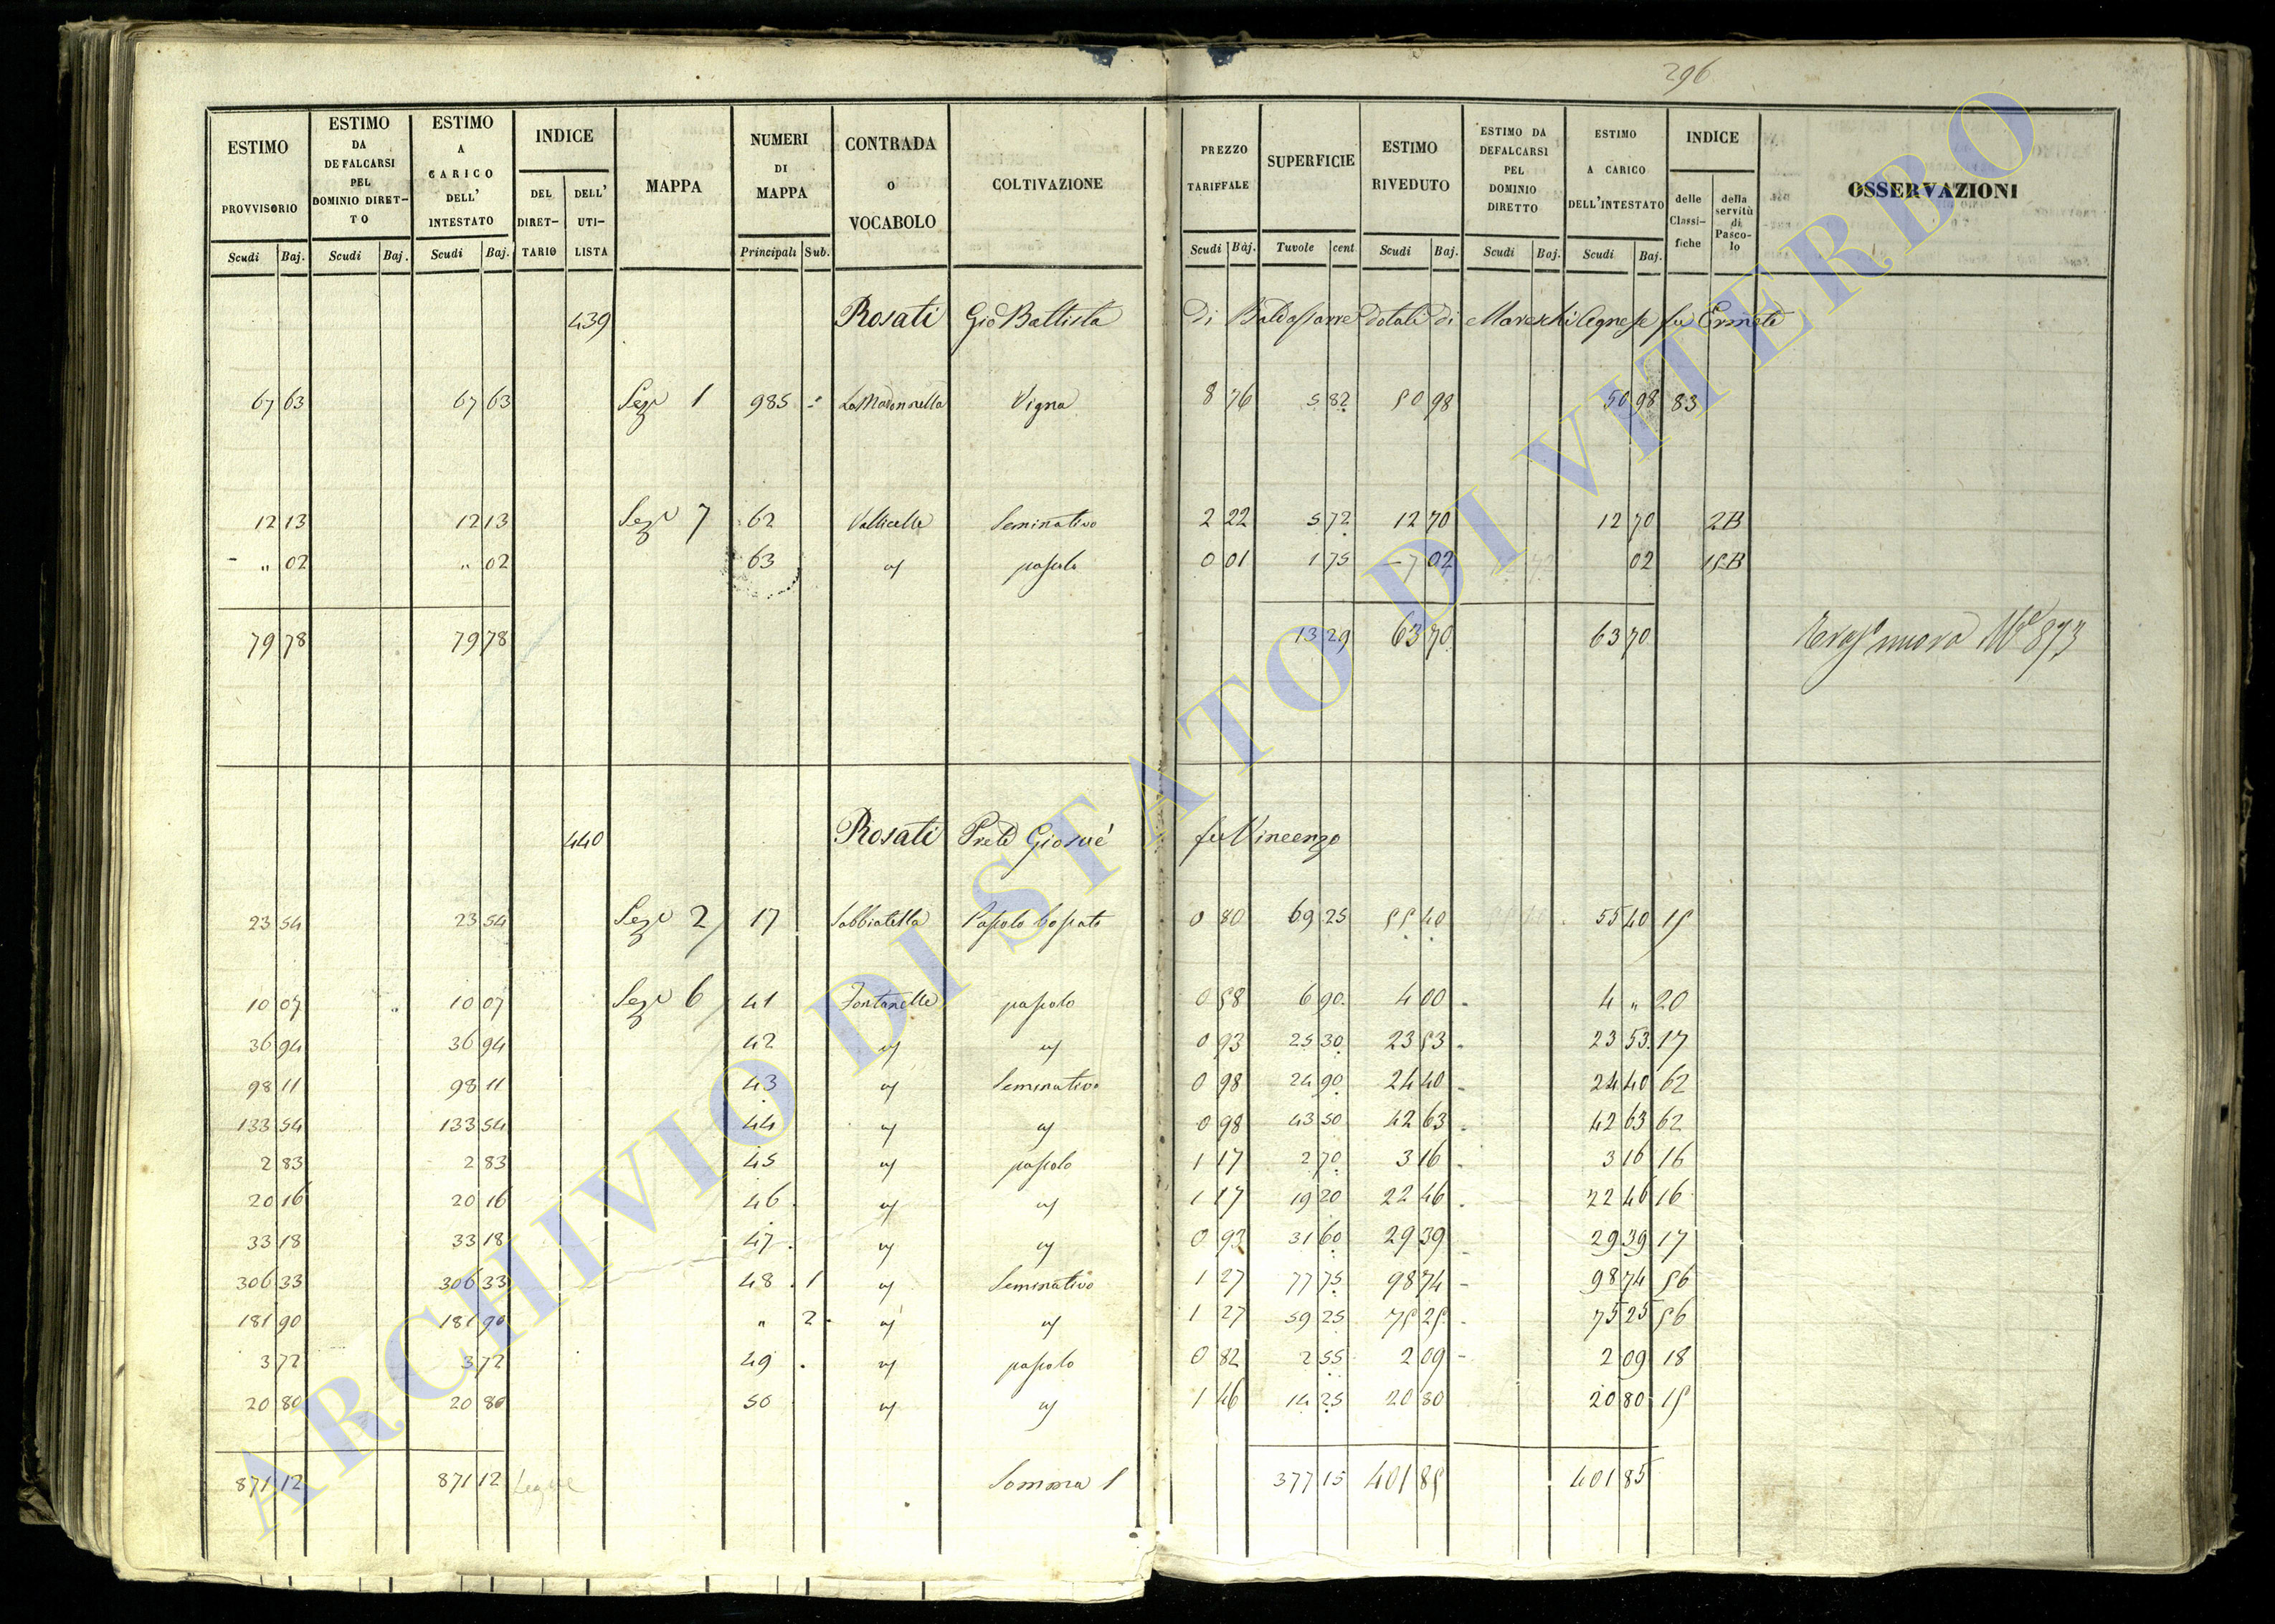 296
ESTIMO PROVVISORIO Scudi Baj. ESTIMO DA DEFALCARSI PEL DOMINIO DIRETTO Scudi Baj. ESTIMO A CARICO DELL' INTESTATO Scudi Baj. INDICE DEL DIRETTARIO DELL' UTILISTA MAPPA NUMERI DI MAPPA Principali Sub. CONTRADA O VOCABOLO COLTIVAZIONE PREZZO TARIFFALE Scudi Baj. SUPERFICIE Tavole cent. ESTIMO RIVEDUTO Scudi Baj. ESTIMO DA DEFALCARSI PEL DOMINIO DIRETTO Scudi Baj. ESTIMO A CARICO DELL'INTESTATO Scudi Baj. INDICE delle Classifiche della servitù di Pascolo OSSERVAZIONI
439 Rosati Gio Battista di Baldassarre dotali di Mareschi Agnese fu Ermete
67 63 67 63 Sez. 1 985 La Madonnella Vigna 8 76 5 82 50 98 50 98 83
12 13 12 13 Sez. 7 62 Vallicelle Seminativo 2 22 5 72 12 70 12 70 2B
- " 02 " 02 63 " pascolo 0 01 1 75 - 02 02 15B
79 78 79 78 13 29 63 70 63 70 nuovo 873
440 Rosati Prete Giosuè fu Vincenzo
23 54 23 54 Sez. 2 17 Sabbiatella Pascolo boscato 0 80 69 25 55 40 55 40 15
10 07 10 07 Sez. 6 41 Fontanelle pascolo 0 58 6 90 4 00 4 " 20
36 94 36 94 42 " " 0 93 25 30 23 53 23 53 17
98 11 98 11 43 " Seminativo 0 98 24 90 24 40 24 40 62
133 54 133 54 44 " " 0 98 43 50 42 63 42 63 62
2 83 2 83 45 " pascolo 1 17 2 70 3 16 3 16 16
20 16 20 16 46 " " 1 17 19 20 22 46 22 46 16
33 18 33 18 47 " " 0 93 31 60 29 39 29 39 17
306 33 306 33 48 1 " Seminativo 1 27 77 75 98 74 98 74 56
181 90 181 90 " 2 " " 1 27 59 25 75 25 75 25 56
3 72 3 72 49 " pascolo 0 82 2 55 2 09 2 09 18
20 80 20 80 50 " " 1 46 14 25 20 80 20 80 15
871 12 871 12 segue Somma 1 377 15 401 85 401 85
ARCHIVIO DI STATO DI VITERBO